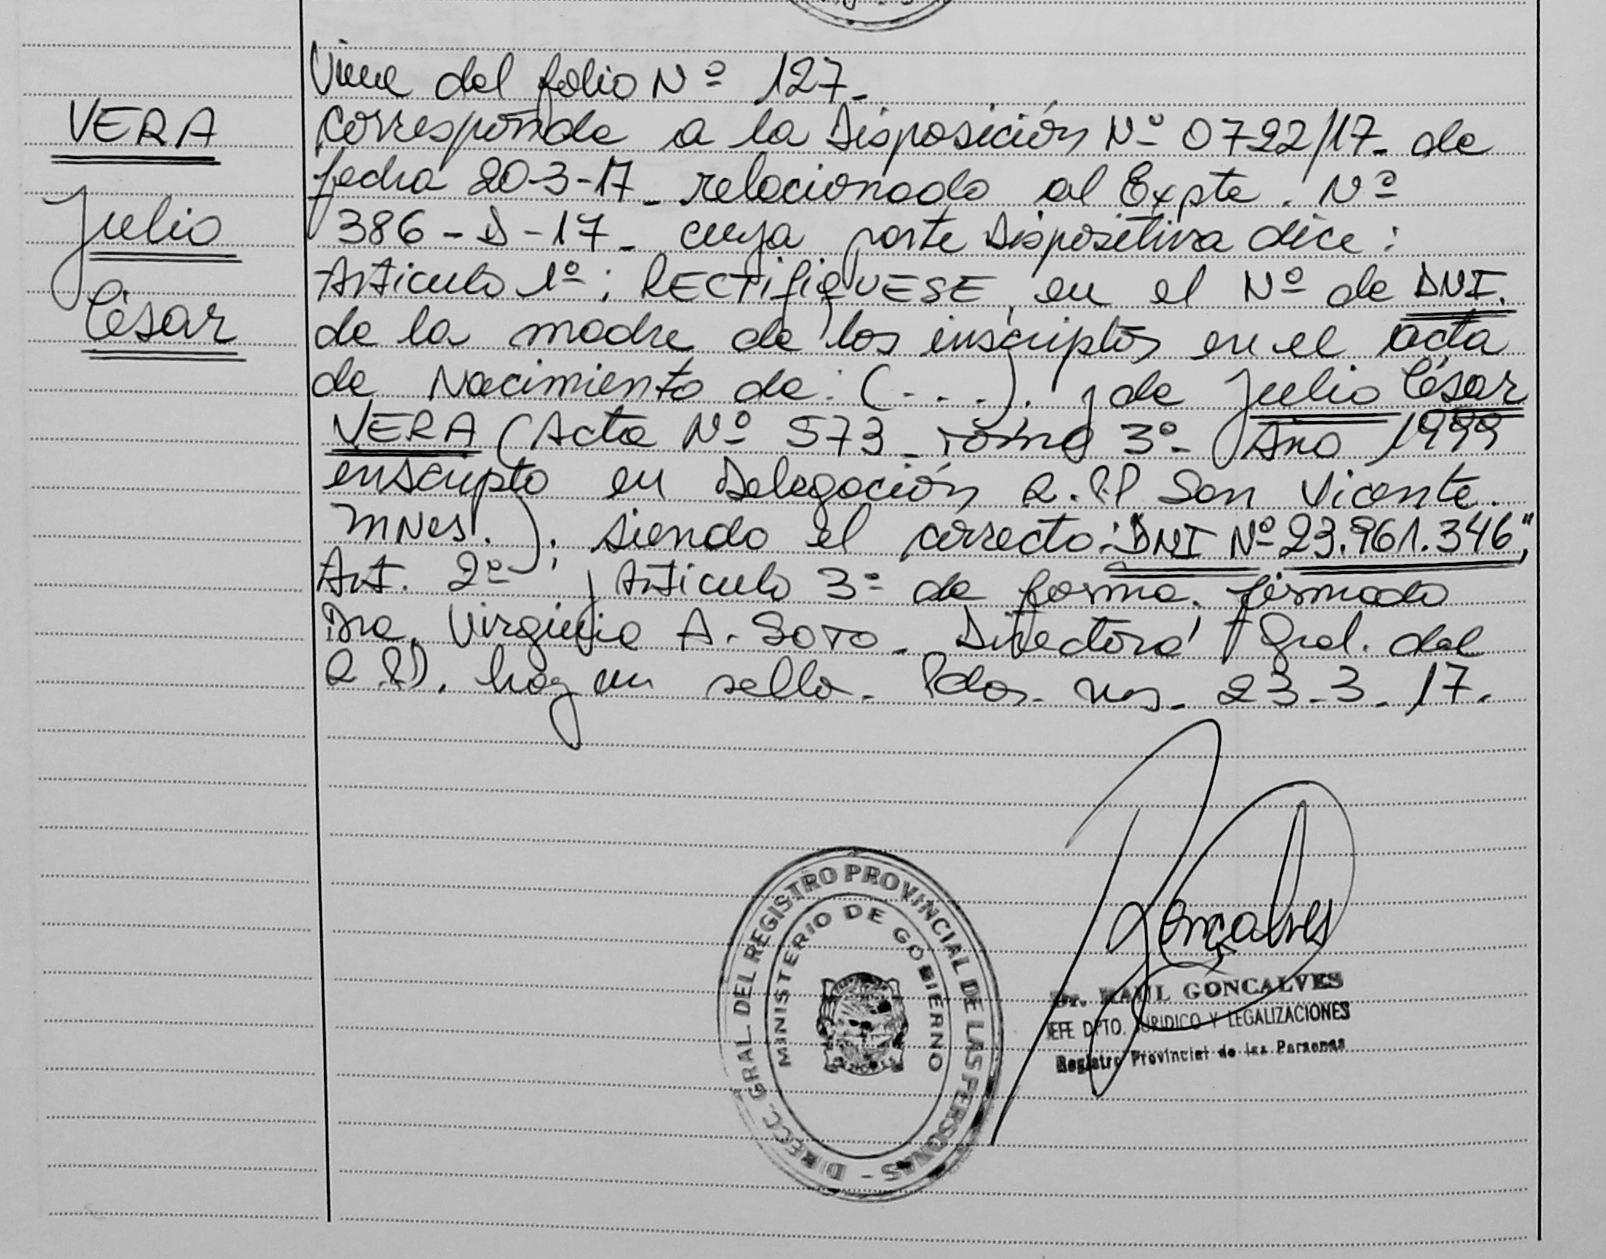 VERA
Julio
César
Viene del folio Nº 127_
Corresponde a la Disposición Nº 0722/17_ de
fecha 20-3-17_ relacionado al Expte. Nº
386-D-17_ cuya parte Dispositiva dice:
Articulo 1º: RECTIFIQUESE, en el Nº de DNI.
de la madre de los inscriptos en el acta
de Nacimiento de: (...). y de Julio César
VERA (Acta Nº 573_ Tomo 3º_ Año 1999
inscripto en Delegación R.P.P San Vicente.
MNes.). siendo el correcto: "DNI Nº 23.961.346",
Art. 2º y Articulo 3º de forma. firmado
Dra. Virginia A. SOTO_ Directora Gral. del
R.P.P. hay un sello_ Pdas. Ms_ 23-3-17.
DIRECC. GRAL. DEL REGISTRO PROVINCIAL DE LAS PERSONAS -
MINISTERIO DE GOBIERNO
Goncalves
Dr. RAUL GONCALVES
JEFE DPTO. JURIDICO Y LEGALIZACIONES
Registro Provincial de las Personas